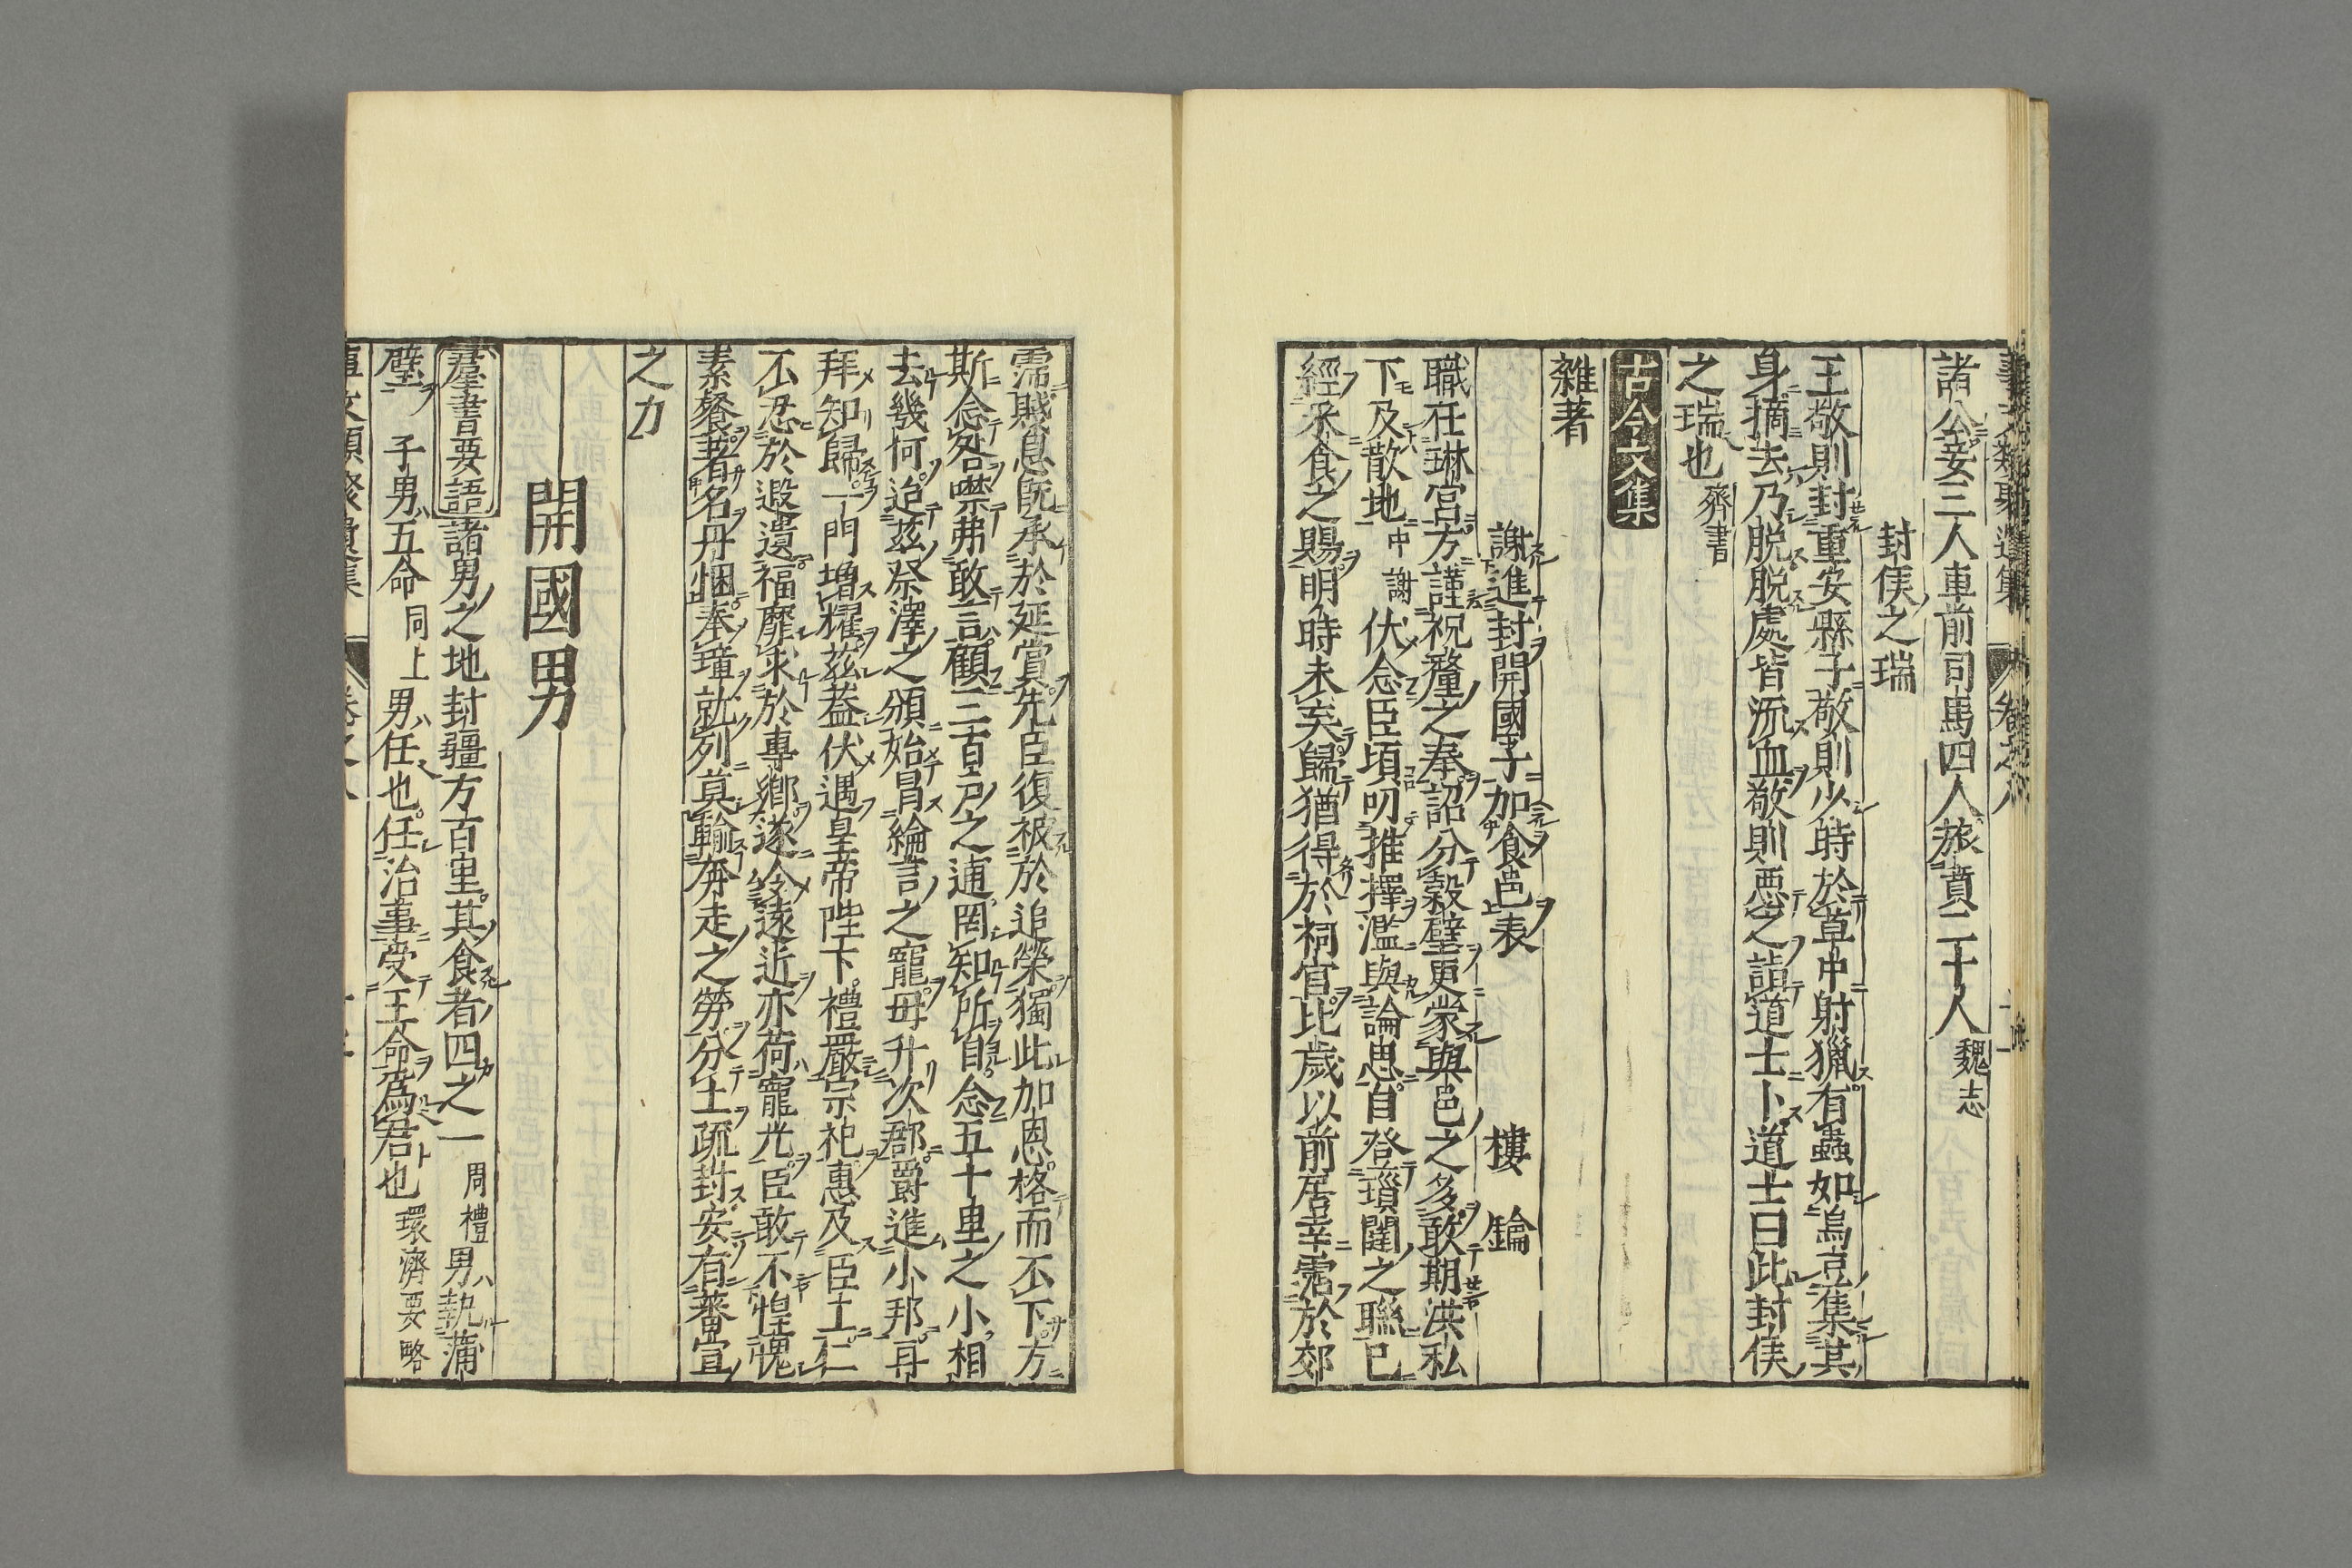 諸公妾三人車前司馬四人旅賁二十人魏志
封侯之瑞
王敬則封重安縣子敬則少時於草中射獵有蟲如烏豆集其
身摘去乃脱脱處皆流血敬則惡之詣道士卜道士曰此封侯
之瑞也齊書
古今文集
雜著
謝進封開國子加食邑表 樓鑰
職在琳宮方謹祝釐之奉詔分穀璧更蒙與邑之多敢期洪私
下及散地中謝伏念臣頃叨推擇濫與論思自登瑣闥之聮已
經釆食之賜明時未矣歸猶得於祠官比歲以前居幸霑於郊
霈賤息旣承於延賞先臣復被於追榮獨此加恩格而不下方
斯念咎噤弗敢言顧三百戸之逋罔知所自念五十里之小相
去幾何迨茲祭澤之頒始冒綸言之寵毋升次郡爵進小邦再
拜知歸一門増耀茲蓋伏遇皇帝陛下禮嚴宗祀惠及臣工仁
不忍於遐遺福靡求於專鄉遂令遠近亦荷寵光臣敢不惶愧
素餐著名丹悃奉璋就列莫輸奔走之勞分土疏封安有蕃宣
之力
開國男
羣書要語諸男之地封疆方百里其食者四之一周禮男執蒲
璧 子男五命同上男任也任治事受王命爲君也環濟要略